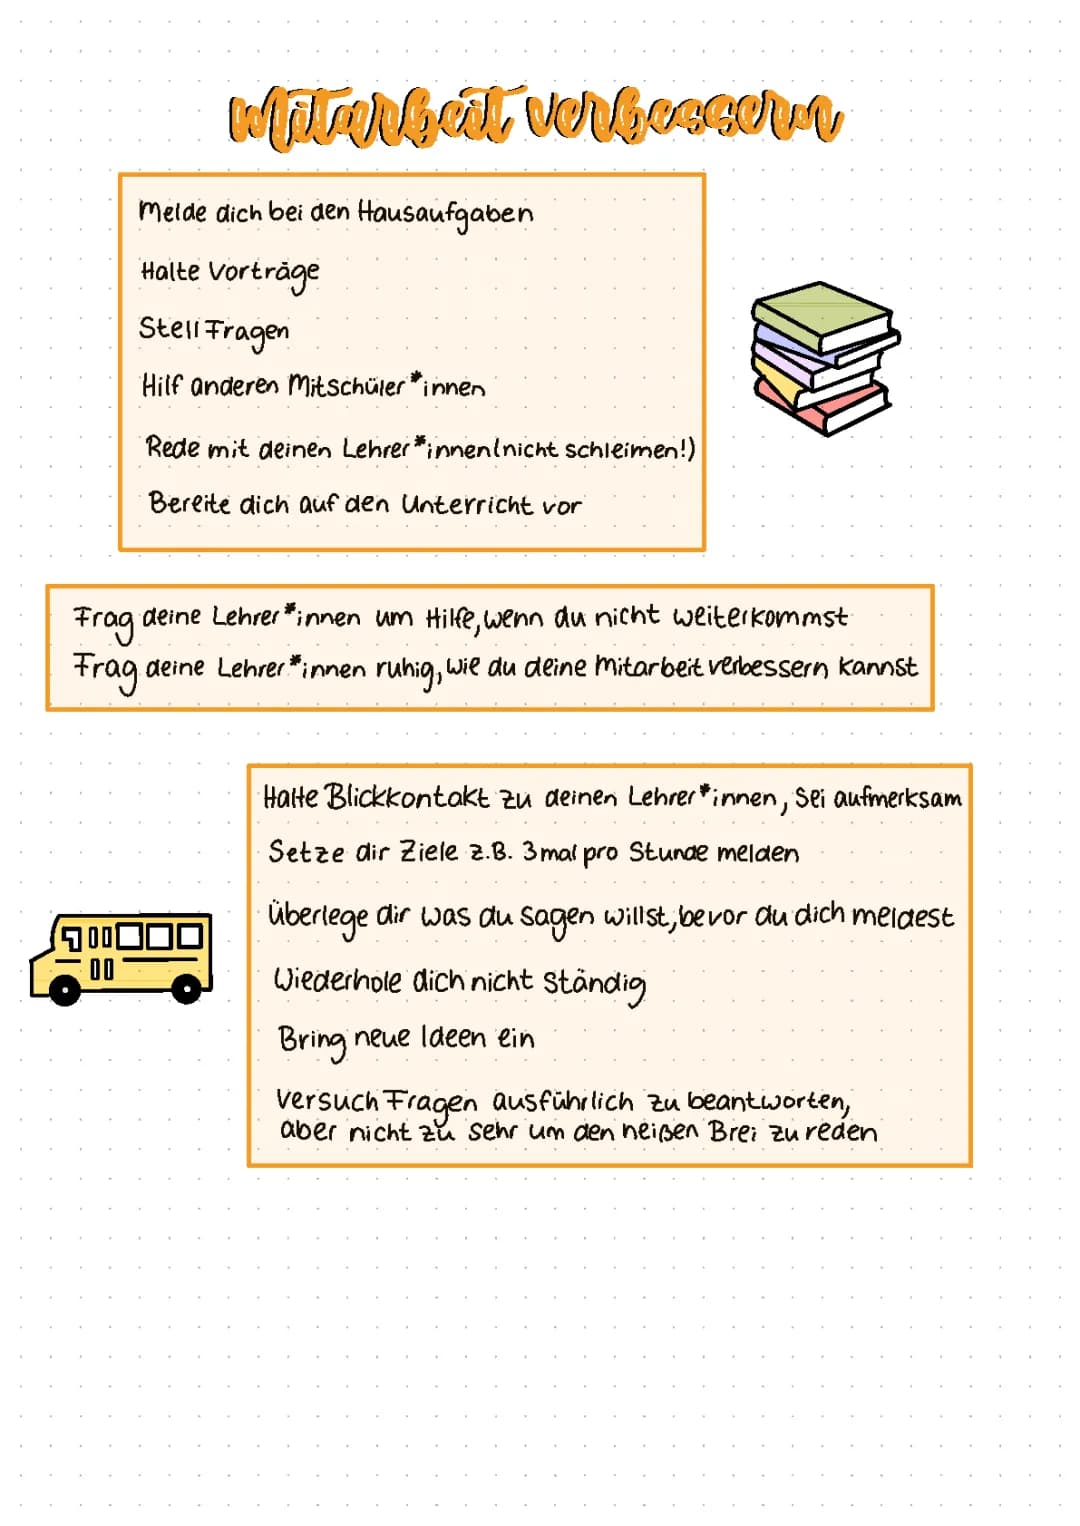 Mitarbeit verbessern
Melde dich bei den Hausaufgaben
Halte Vorträge
Stell Fragen
Hilf anderen Mitschüler*innen
Rede mit deinen Lehrer*innen(nicht schleimen!)
Bereite dich auf den Unterricht vor
Frag deine Lehrer*innen um Hilfe, wenn du nicht weiterkommst
Frag deine Lehrer*innen ruhig, wie du deine Mitarbeit verbessern kannst
Halte Blickkontakt zu deinen Lehrer*innen, sei aufmerksam
Setze dir Ziele z.B. 3mal pro Stunde melden
Überlege dir was du sagen willst, bevor du dich meldest
Wiederhole dich nicht ständig
Bring neue Ideen ein
Versuch Fragen ausführlich zu beantworten,
aber nicht zu sehr um den heißen Brei zu reden